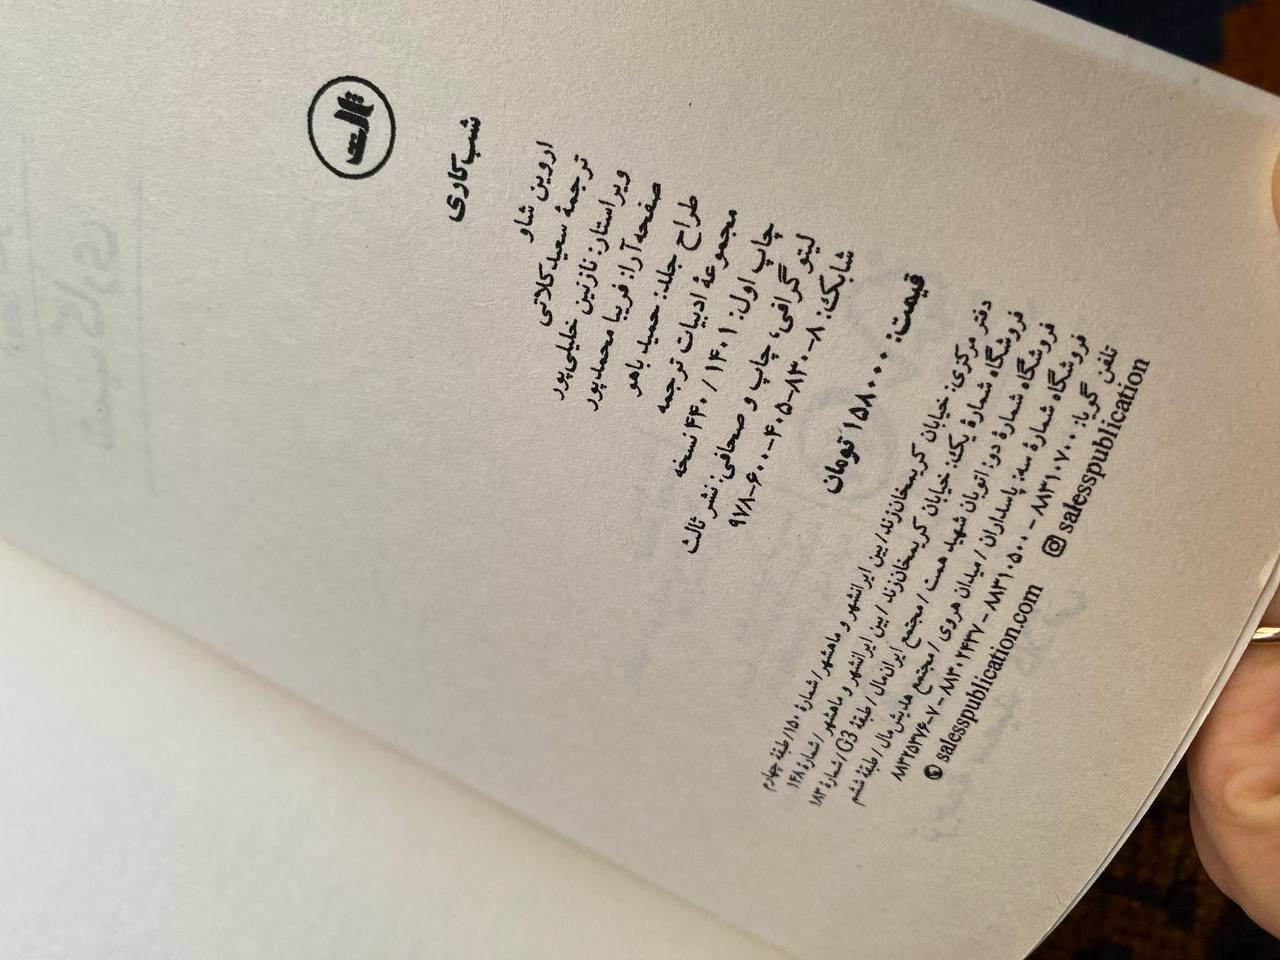 ثالث
شب‌کاری
اروین شاو
ترجمهٔ سعید کلاتی
ویراستار: نازنین خلیلی‌پور
صفحه‌آرا: فریبا محمدپور
طراح جلد: حمید باهو
مجموعهٔ ادبیات ترجمه
چاپ اول: ۱۴۰۱ / ۴۴۰ نسخه
لیتوگرافی، چاپ و صحافی: نشر ثالث
شابک: ۸-۸۳۰-۴۰۵-۶۰۰-۹۷۸
قیمت: ۱۵۸۰۰۰ تومان
دفتر مرکزی: خیابان کریمخان‌زند/ بین ایرانشهر و ماهشهر/ شمارهٔ ۱۵۰/ طبقهٔ چهارم
فروشگاه شمارهٔ یک: خیابان کریمخان‌زند/ بین ایرانشهر و ماهشهر/ شمارهٔ ۱۴۸
فروشگاه شمارهٔ دو: اتوبان شهید همت/ مجتمع ایران‌مال/ طبقهٔ G3/ شمارهٔ ۱۸۳
فروشگاه شمارهٔ سه: پاسداران/ میدان هروی/ مجتمع هدیش‌مال/ طبقهٔ ششم
تلفن گویا: ۸۸۳۱۰۷۰۰ - ۸۸۳۱۰۵۰۰ - ۸۸۳۰۲۴۳۷ - ۸۸۳۲۵۳۷۶-۷
salesspublication.com salesspublication